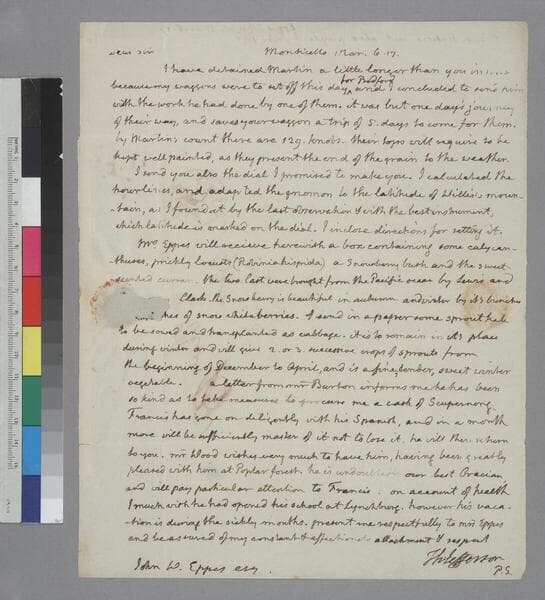 Dear Sir Monticello Mar. 6. 17.
I have detained Martin a little longer than you
because my waggons were to set off this day for Bedford and I concluded to send him
with the work he had done by one of them. it was but one day's journey
of their way, and saves your waggon a trip of 5. days to come for them.
by Martin's count there are 129. knobs. their tops will require to be
kept well painted, as they present the end of the grain to the weather.
I send you also the dial I promised to make you. I calculated the
hour lines, and adapted the gnomon to the latitude of Willis's moun-
-tain, as I found it by the last observation & with the best instrument,
which latitude is marked on the dial. I inclose directions for setting it.
Mrs Eppes will recieve herewith a box containing some calycan-
-thuses, prickly locusts (Robinia hispida) a Snowberry bush and the sweet
scented curran. the two last were brought from the Pacific ocean by Lewis and
Clarke. the Snowberry is beautiful in autumn and winter by it's bunches
of snow white berries. I send in a paper some sprout kale
to be sowed and transplanted as cabbage. it is to remain in it's place
during winter and will give 2. or 3. successive crops of sprouts from
the beginning of December to April, and is a fine, tender, sweet winter
vegetable. a letter from mr Burton informs me he has been
so kind as to take measures to procure me a cask of Scupernong.
Francis has gone on diligently with his Spanish, and in a month
more will be sufficiently master of it not to lose it. he will then return
to you. mr Wood wishes very much to have him, having been greatly
pleased with him at Poplar forest. he is undoubtedly our best Graecian
and will pay particular attention to Francis. on account of health
I much wish he had opened his school at Lynchburg. however his vaca-
-tion is during the sickly months. present me respectfully to mrs Eppes
and be assured of my constant & affectionate attachment & respect
Th: Jefferson
John W. Eppes esq. P.S.